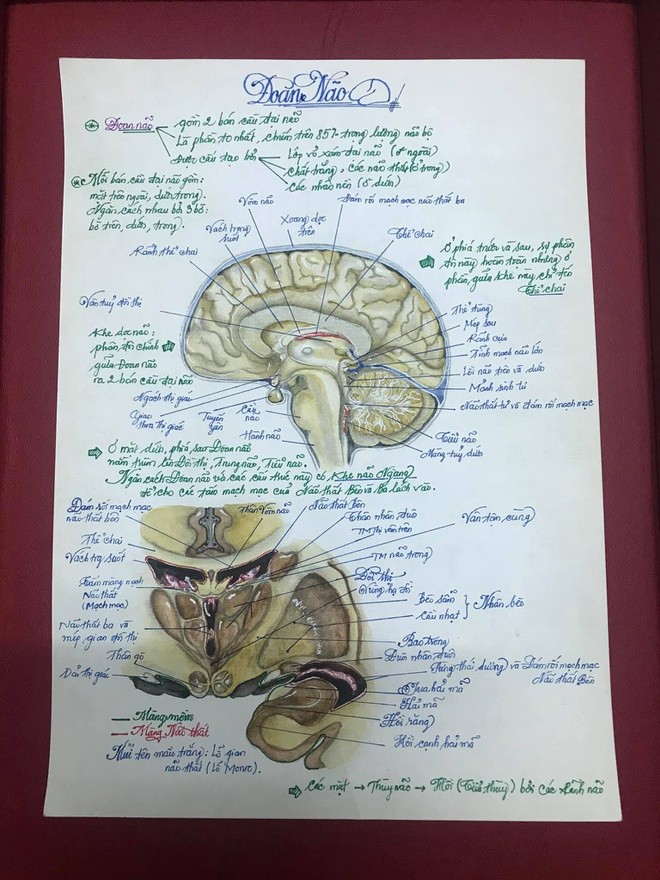 Đoan Não
Đoan não
gồm 2 bán cầu đại não
Là phần to nhất, chiếm trên 85% trọng lượng não bộ
Được cấu tạo bởi
Lớp vỏ xám đại não (ở ngoài)
chất trắng, các não thất (ở trong)
các nhân nền (ở dưới)
Mỗi bán cầu đại não gồm:
mặt trên ngoài, dưới, trong.
Ngăn cách nhau bởi 3 bờ:
bờ trên, dưới, trong.
Vòm não
Đám rối mạch mạc não thất ba
Vách trong suốt
Xoang dọc trên
Thể chai
Rãnh thể chai
Ở phía trước và sau, sự phân
tri này hoàn toàn nhưng ở
phần giữa khe này, chỉ tới
thể chai
Vân tuỷ đồi thị
Khe dọc não:
phân đôi chính
giữa Đoan não
ra 2 bán cầu đại não
Thể tùng
Mép sau
Rãnh cựa
Tĩnh mạch não lớn
Lồi não trên và dưới
Mảnh sinh tư
Não thất tư và đám rối mạch mạc
Ngách thị giác
Giao thoa thị giác
Tuyến yên
Cầu não
Hành não
Tiểu não
Màng tuỷ dưới
Ở mặt dưới, phía sau Đoan não
nằm trùm lên Đồi thị, Trung não, Tiểu não.
Ngăn cách Đoan não và các cấu thúc này có Khe não Ngang
để cho các tấm mạch mạc của Não thất Bên và Ba lách vào.
Đám rối mạch mạc
não thất bên
Thân Vòm não
Não thất Bên
Thân nhân đuôi
TM Thị vân trên
Vân tận cùng
Thể chai
Vách tr. suốt
TM não trong
Tấm màng mạch
Não thất 3
(Mạch mạc)
Đồi thị
Vùng hạ đồi
Bèo sẫm
Cầu nhạt
Nhân bèo
Não thất ba và
mép gian đồi thị
Bao trong
Thân gò
Đuôi nhân đuôi
Dải thị giác
Sừng thái dương và Đám rối mạch mạc
Não thất Bên
Tua hải mã
Hải mã
Hồi răng
Hồi cạnh hải mã
Màng mềm
Màng Não thất
Mũi tên màu trắng: Lỗ gian
não thất (Lỗ Monro).
Các mặt → Thùy não → Hồi (Tiểu thùy) bởi các Rãnh não